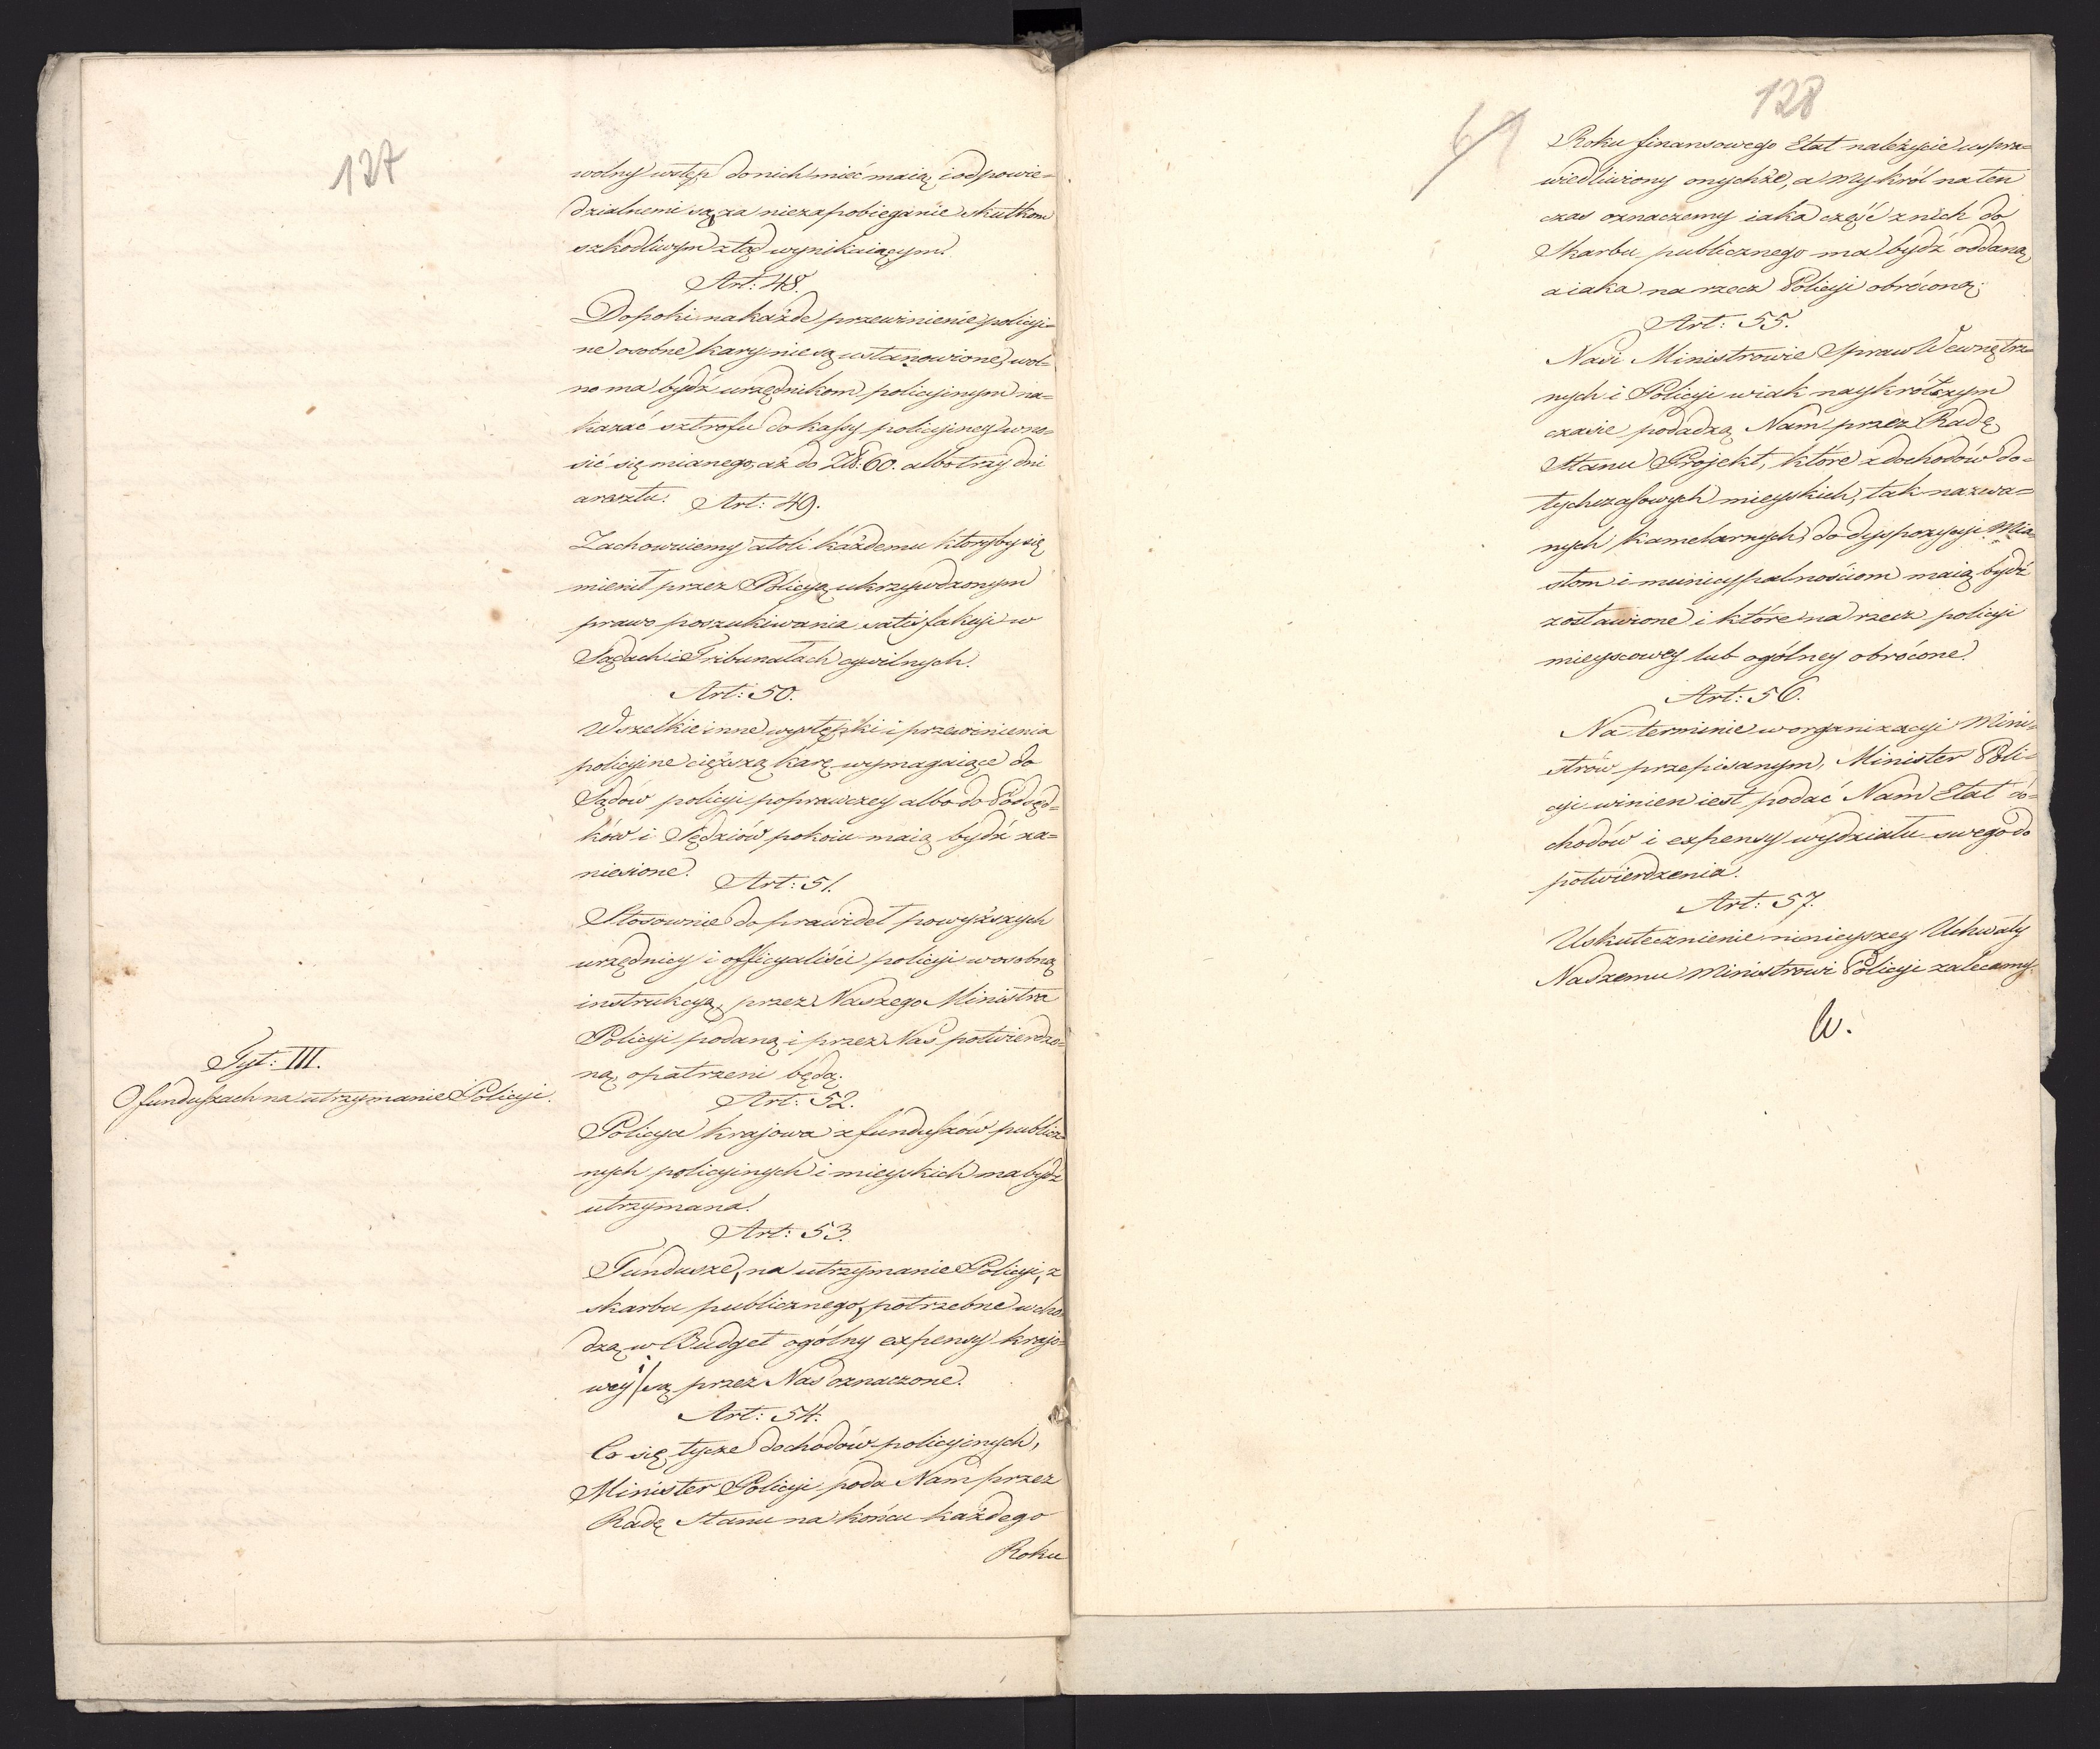 127
wolny wstęp do nich mieć maią i odpowie=
dzialnemi są za niezapobieganie skutkom
szkodliwym ztąd wynikaiącym.
Art: 48.
Dopoki na każde przewinienie policyi=
ne osobne kary nie są ustanowione, wol=
no ma bydź urzędnikom policyinym na=
kazać sztrofu do kassy policyiney wno=
sić się mianego, aż do Zł: 60. albo trzy dni
aresztu.
Art: 49.
Zachowuiemy atoli każdemu ktoryby się
mienił przez Policyą ukrzywdzonym
prawo poszukiwania satisfakcyi w
Sądach i Tribunałach cywilnych.
Art: 50.
Wszelkie inne występki i przewinienia
policyine cięższą karę wymagaiące do
Sądów policyi poprawczey albo do Podsęd=
ków i Sędziów pokoiu maią bydź za=
niesione.
Art: 51.
Stosownie do prawideł powyższych
urzędnicy i officyaliści policyi w osobną
instrukcyą, przez Naszego Ministra
Policyi podaną i przez Nas potwierdzo=
ną, opatrzeni będą.
Tyt: III.
O funduszach na utrzymanie Policyi.
Art: 52.
Policya krajowa z funduszów publicz=
nych policyinych i mieyskich ma bydź
utrzymana.
Art: 53.
Fundusze, na utrzymanie Policyi, z
skarbu publicznego, potrzebne wcho=
dzą w Budget ogólny expensy krajo=
wey i są przez Nas oznaczone.
Art: 54.
Co się tycze dochodów policyinych,
Minister Policyi poda Nam przez
Radę Stanu na końcu każdego
Roku
128
Roku finansowego Etat należycie uspra=
wiedliwiony onychże, a My król na ten
czas oznaczemy iaka część z nich do
Skarbu publicznego ma bydź oddaną,
a iaka na rzecz Policyi obróconą.
Art: 55.
Nasi Ministrowie Spraw Wewnętrz=
nych i Policyi w iak naykrótszym
czasie podadzą Nam przez Radę
Stanu Projekt, które z dochodów do=
tychczasowych mieyskich, tak nazwa=
nych Kamelarnych, do dyspozycyi Mia=
stom i municypalnościom maią bydź
zostawione i które na rzecz policyi
mieyscowey lub ogólney obrócone.
Art: 56.
Na terminie w organizacyi Mini=
strów przepisanym, Minister Poli=
cyi winien iest podać Nam Etat do=
chodów i expensy wydziału swego do
potwierdzenia.
Art: 57.
Uskutecznienie ninieyszey Uchwały
Naszemu Ministrowi Policyi zalecamy.